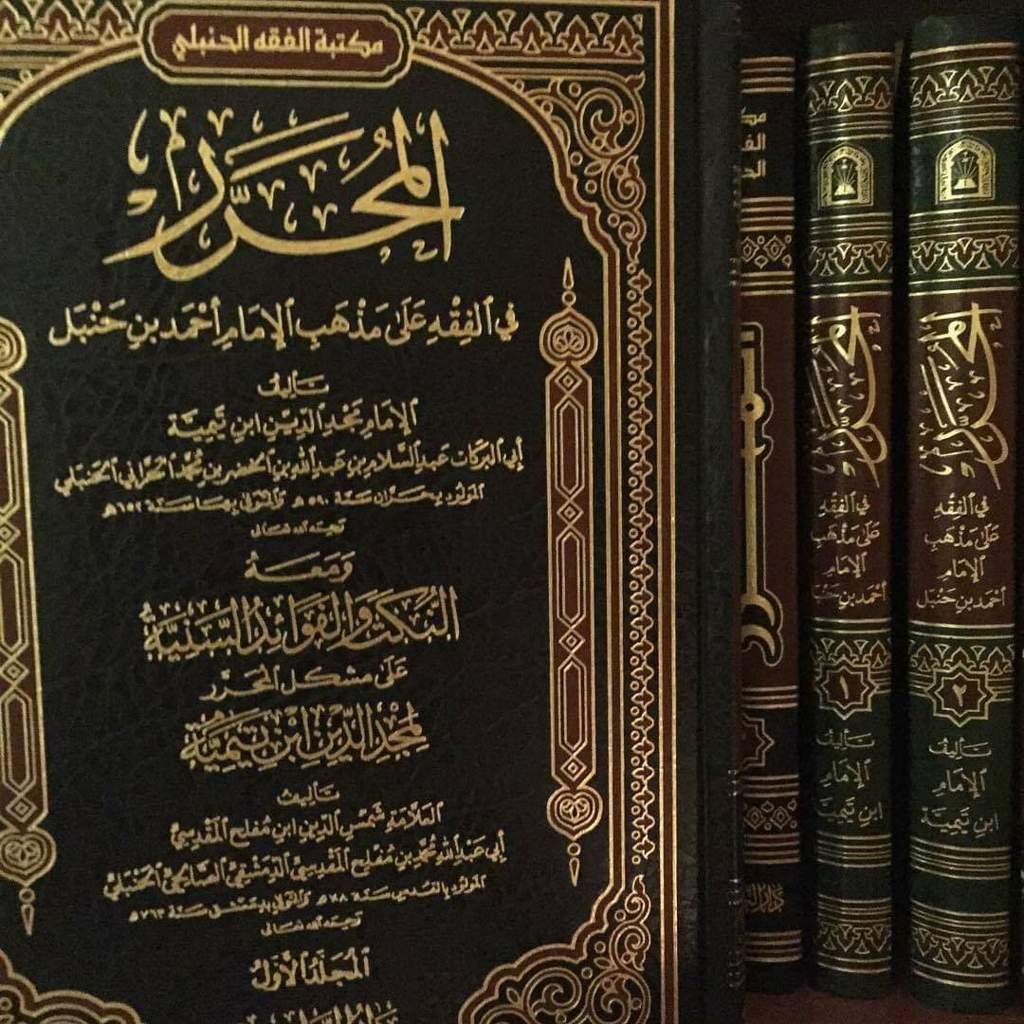 مكتبة الفقه الحنبلي
المُحَرَّر
في الفِقْهِ عَلَى مَذْهَبِ الإِمَامِ أَحْمَد بنِ حَنْبَل
تأليف
الإِمَامِ مَجْدِ الدِّينِ ابنِ تَيْمِيَّة
أبي البركات عبد السلام بن عبد الله بن الخضر بن محمد الحراني الحنبلي
المولود بحران سنة ٥٩٠ هـ والمتوفى بها سنة ٦٥٢ هـ
رحمه الله تعالى
وَمَعَهُ
النُّكَتُ وَالفَوَائِدُ السَّنِيَّةُ
عَلَى مشكل المحَرَّر
لِمَجْدِ الدِّينِ ابْنِ تَيْمِيَّة
تأليف
العَلَّامَةِ شَمْسِ الدِّينِ ابنِ مُفلِح المَقْدِسِيّ
أبي عبد الله محمد بن مفلح المقدسي الدمشقي الصالحي الحنبلي
المولود بالقدس سنة ٧٠٨ هـ والمتوفى بدمشق سنة ٧٦٣ هـ
رحمه الله تعالى
المُجَلَّدُ الأَوَّلُ
المحرر
في الفِقْهِ
عَلَى مَذْهَبِ
الإِمَامِ
أحمد بن حنبل
١
تأليف
الإِمَام
ابن تيمية
المحرر
في الفِقْهِ
عَلَى مَذْهَبِ
الإِمَامِ
أحمد بن حنبل
٢
تأليف
الإِمَام
ابن تيمية